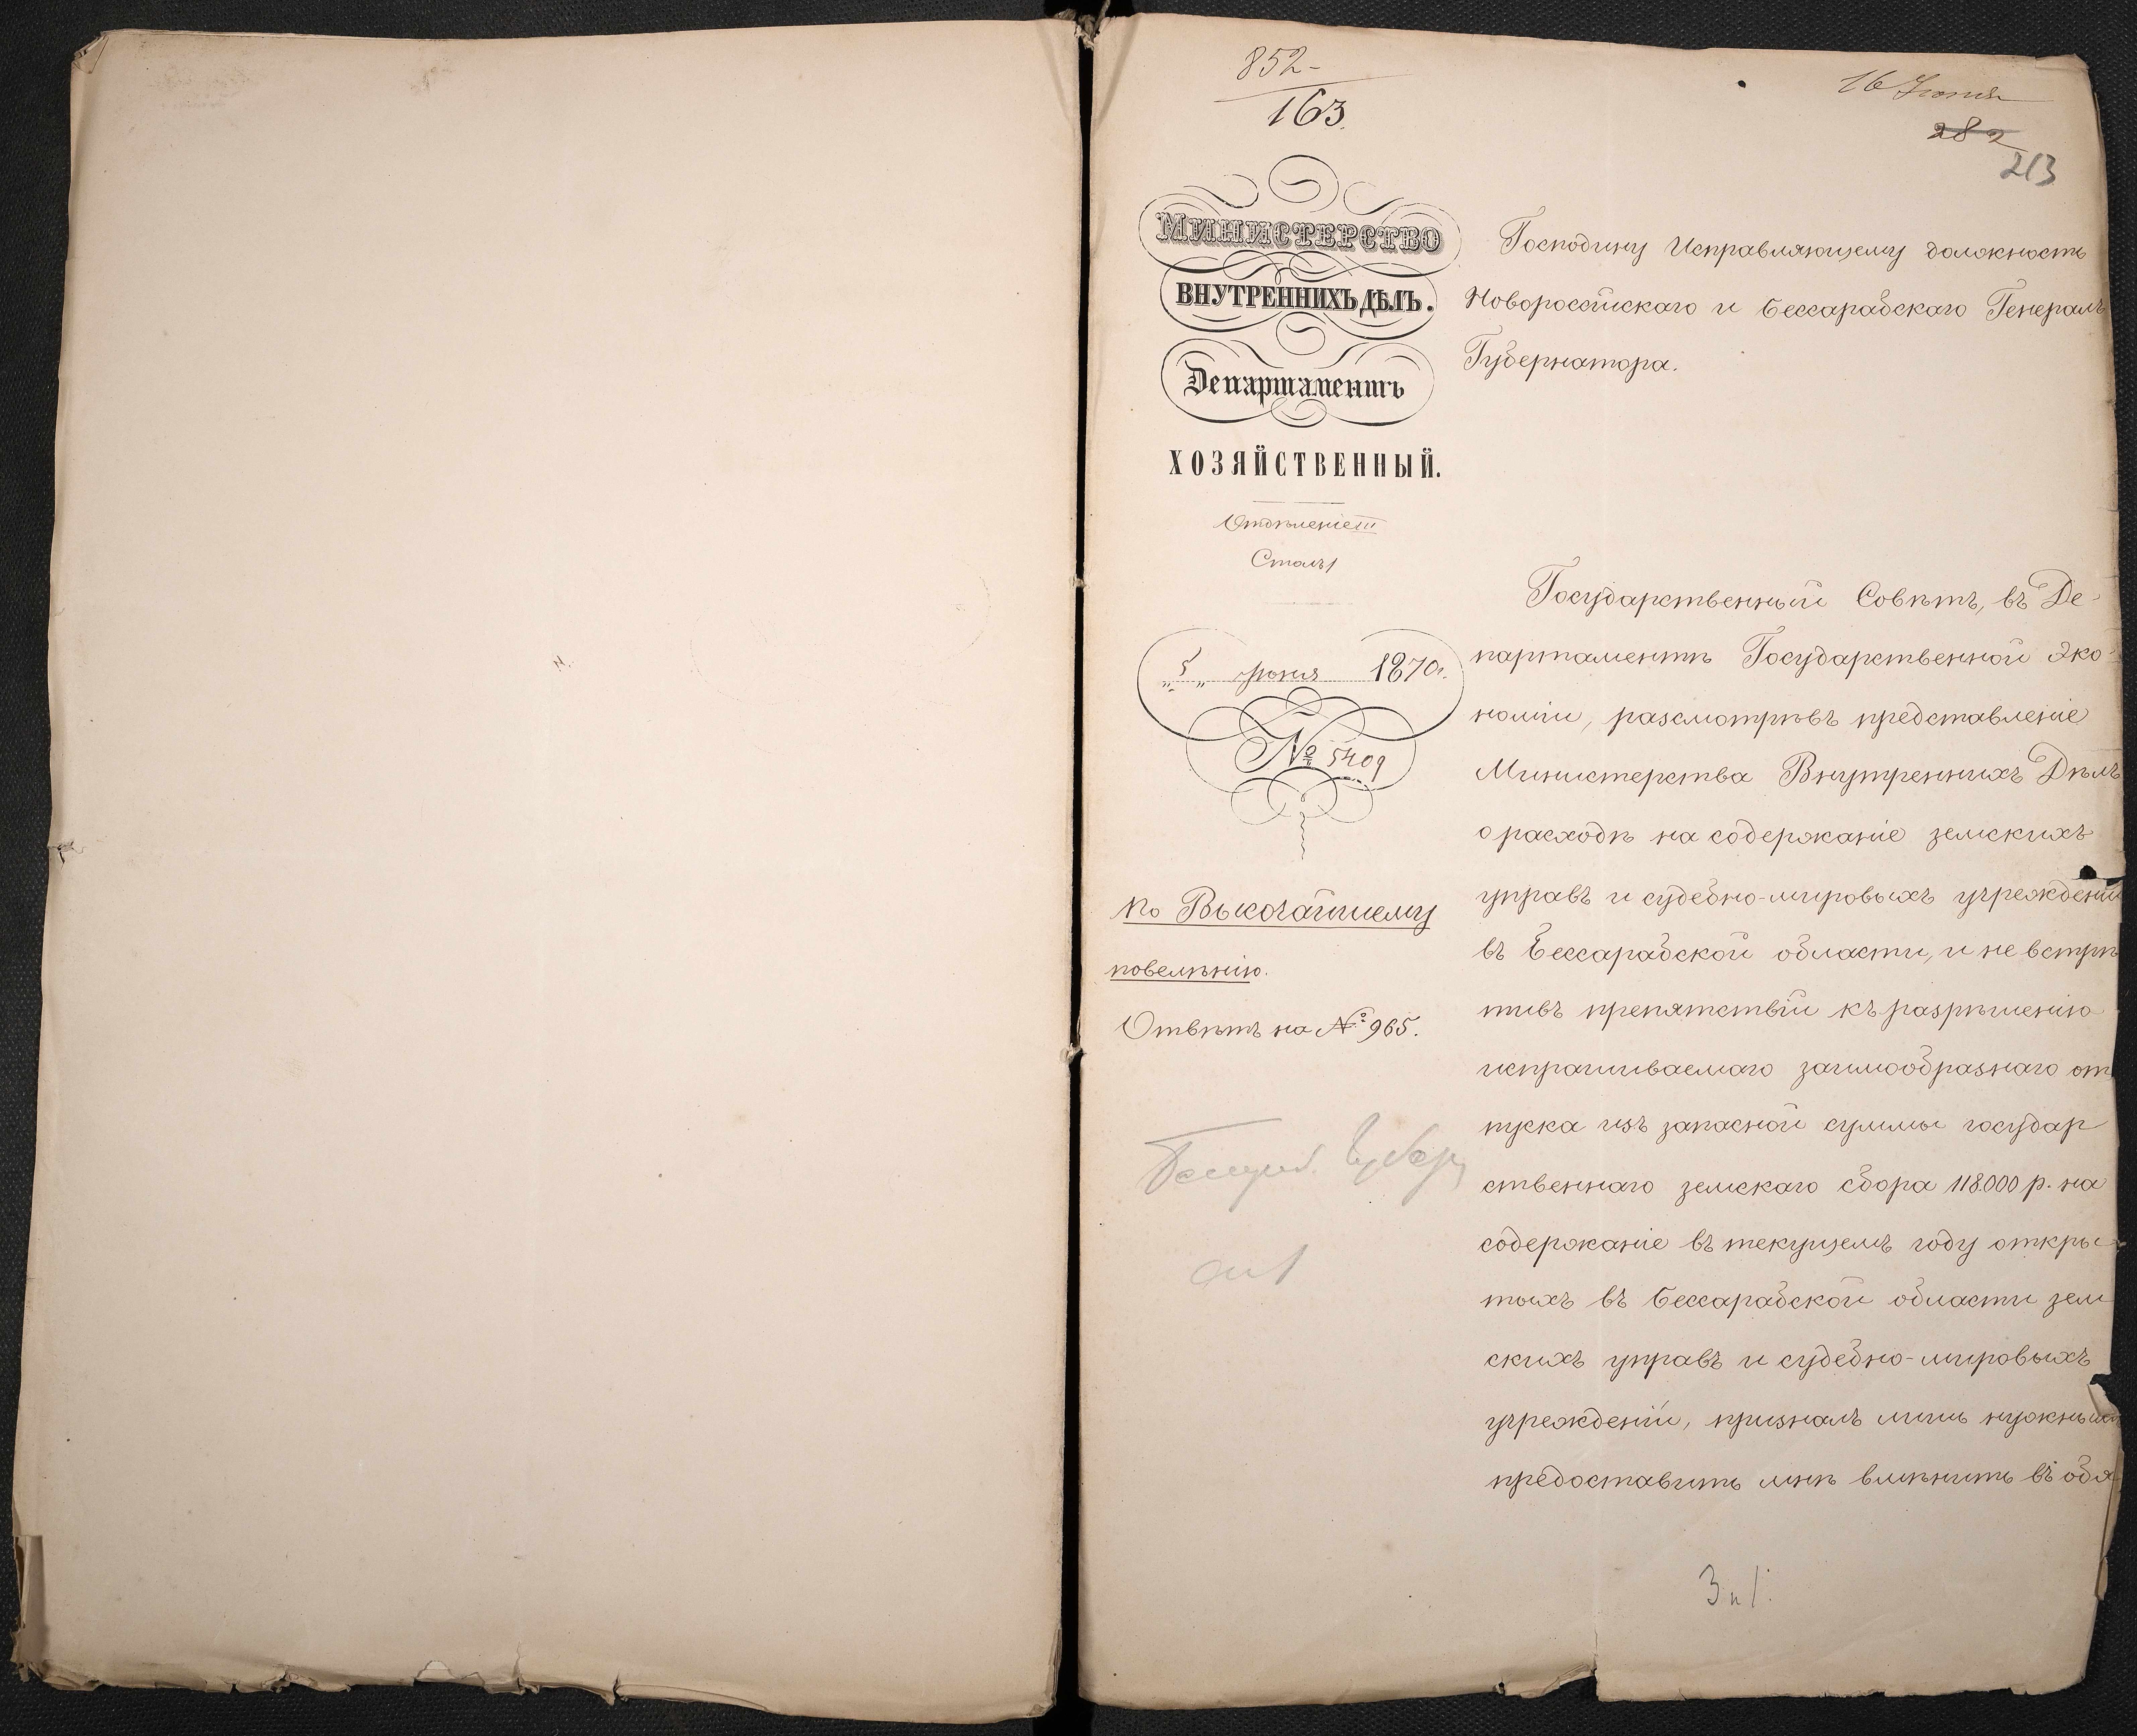 852-
163.
16 Іюня
282
213
МИНИСТЕРСТВО
ВНУТРЕННИХЪ ДѢЛЪ.
Департаментъ
ХОЗЯЙСТВЕННЫЙ.
Отдѣленіе III
Столъ 1
„5„ Іюня 1870 г.
№ 5409
По Высочайшему
повелѣнію.
Отвѣтъ на № 965.
Господину Исправляющему должность
Новороссійскаго и Бессарабскаго Генералъ
Губернатора.
Государственный Совѣтъ, въ Де-
партаментѣ Государственной Эко-
номіи, разсмотрѣвъ представленіе
Министерства Внутреннихъ Дѣлъ
о расходѣ на содержаніе земскихъ
управъ и судебно-мировыхъ учрежденій
въ Бессарабской области, и не встрѣ
тивъ препятствій къ разрѣшенію
испрашиваемаго заимообразнаго от
пуска изъ запасной суммы государ
ственнаго земскаго сбора 118.000 р. на
содержаніе въ текущемъ году откры-
тыхъ въ Бессарабской области зем
скихъ управъ и судебно-мировыхъ
учрежденій, призналъ лишь нужнымъ
предоставить мнѣ вмѣнить въ обя
3 и 1.